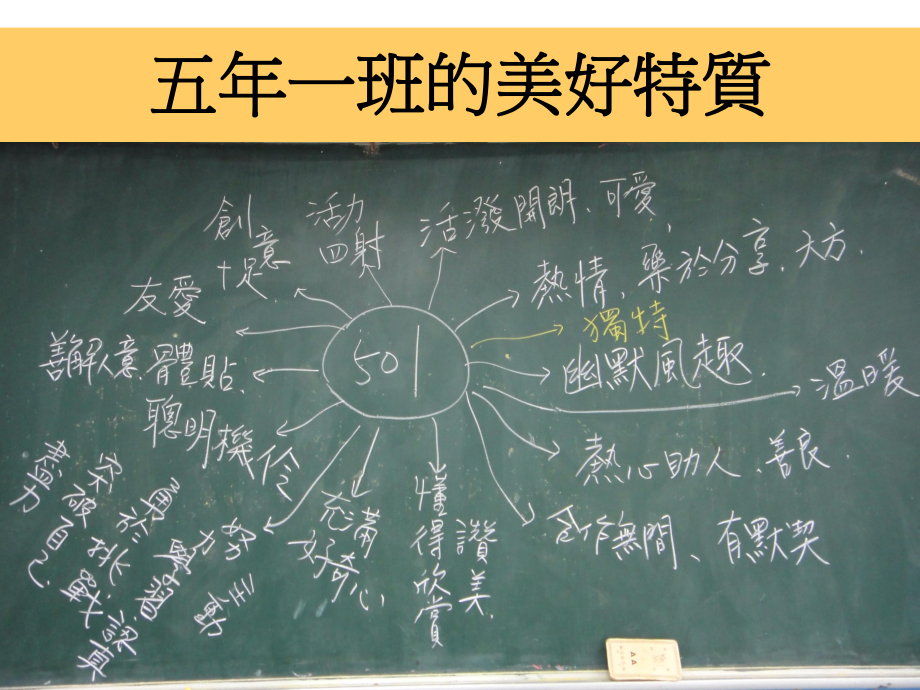 五年一班的美好特質
創意
十足
活力
四射
活潑開朗、可愛
熱情、樂於分享、大方
友愛
獨特
善解人意、體貼
501
幽默風趣
溫暖
聰明機伶
熱心助人、善良
合作無間、有默契
懂得欣賞
讚美
充滿
好奇心
主動
努力學習、認真
勇於挑戰、
突破自己、
盡力
AA